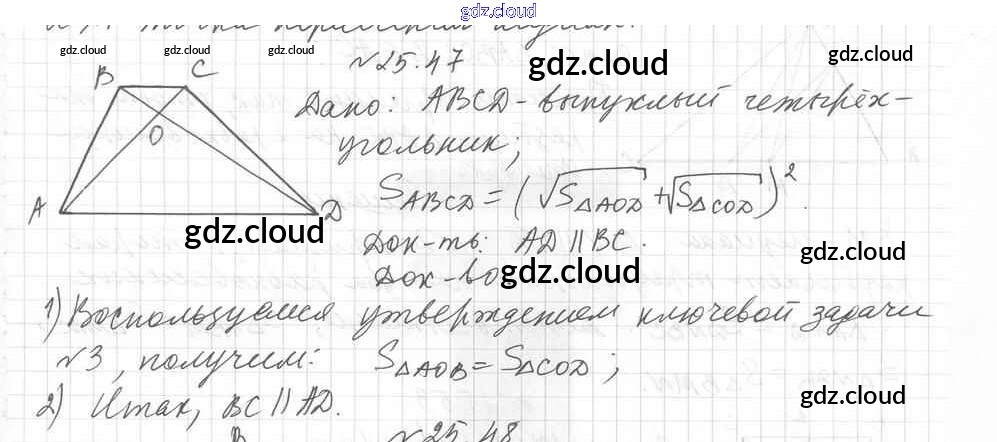 gdz.cloud
точка пересечения
gdz.cloud gdz.cloud gdz.cloud gdz.cloud gdz.cloud
№25.47
gdz.cloud
gdz.cloud
B C
Дано: ABCD - выпуклый четырёх-
O
угольник;
A D
S_ABCD = (√S_ΔAOD + √S_ΔCOD)².
gdz.cloud
Док-ть: AD || BC.
gdz.cloud
Док-во
gdz.cloud
1) Воспользуемся утверждением ключевой задачи
№3, получим: S_ΔAOB = S_ΔCOD;
2) Итак, BC || AD.
gdz.cloud
B №25.48